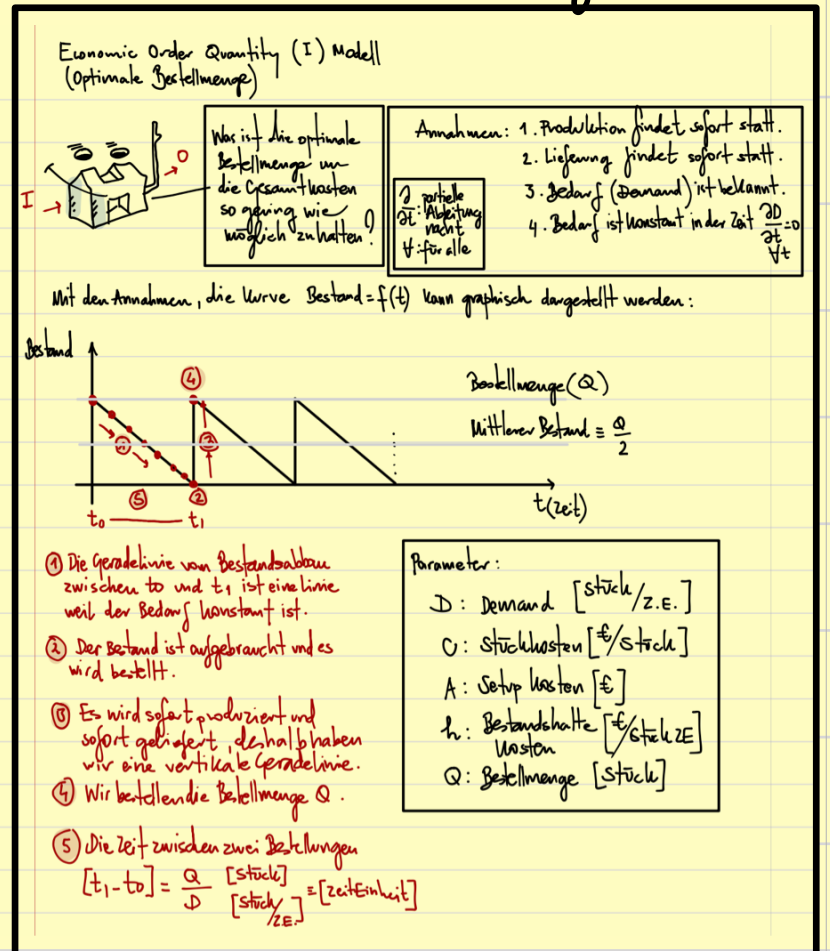 Economic Order Quantity (I) Modell
(Optimale Bestellmenge)
I
O
Was ist die optimale
Bestellmenge um
die Gesamtkosten
so gering wie
möglich zuhalten?
Annahmen: 1. Produktion findet sofort statt.
2. Lieferung findet sofort statt.
3. Bedarf (Demand) ist bekannt.
4. Bedarf ist konstant in der Zeit ∂D/∂t=0
∀t
∂/∂t: partielle
Ableitung
nach t
∀: für alle
Mit den Annahmen, die Kurve Bestand=f(t) kann graphisch dargestellt werden:
Bestand
④
①
③
⑤
②
t0 t1
t(zeit)
Bestellmenge(Q)
Mittlerer Bestand = Q/2
① Die Geradelinie vom Bestandsabbau
zwischen t0 und t1 ist eine linie
weil der Bedarf konstant ist.
② Der Bestand ist aufgebraucht und es
wird bestellt.
③ Es wird sofort produziert und
sofort geliefert, deshalb haben
wir eine vertikale Geradelinie.
④ Wir bestellen die Bestellmenge Q.
⑤ Die Zeit zwischen zwei Bestellungen
[t1-t0] = Q/D [stück]/[stück/ZE.] = [zeitEinheit]
Parameter:
D: Demand [stück/Z.E.]
C: Stückkosten [€/stück]
A: Setup kosten [€]
h: Bestandshalte
kosten [€/stück ZE]
Q: Bestellmenge [stück]